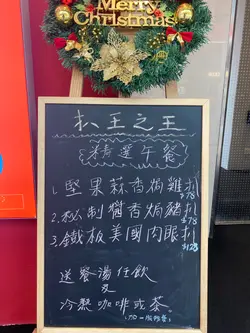 Merry
Christmas
扒王之王
精選午餐
1. 堅果蒜香焗雞扒
$78
2. 秘制獨香焗豬扒
$78
3. 鐵板美國肉眼扒
$128
送餐湯任飲
及
冷熱咖啡或茶
(加一服務費)